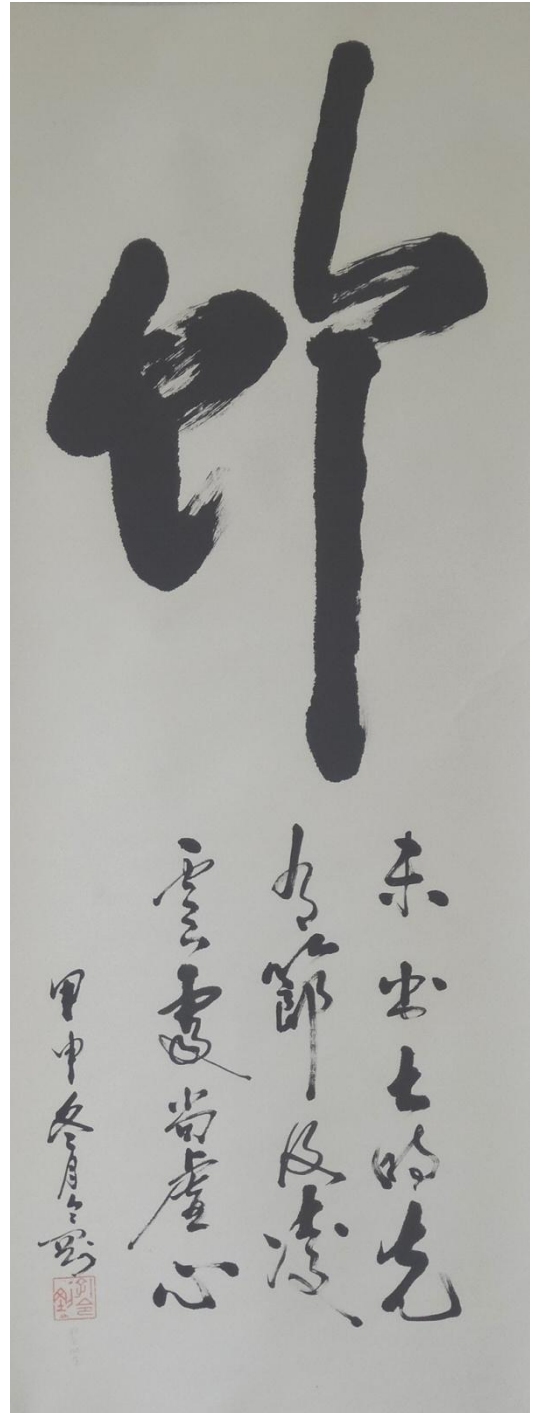 竹
未出土時先
有節及凌
雲處尚虛心
甲申冬月